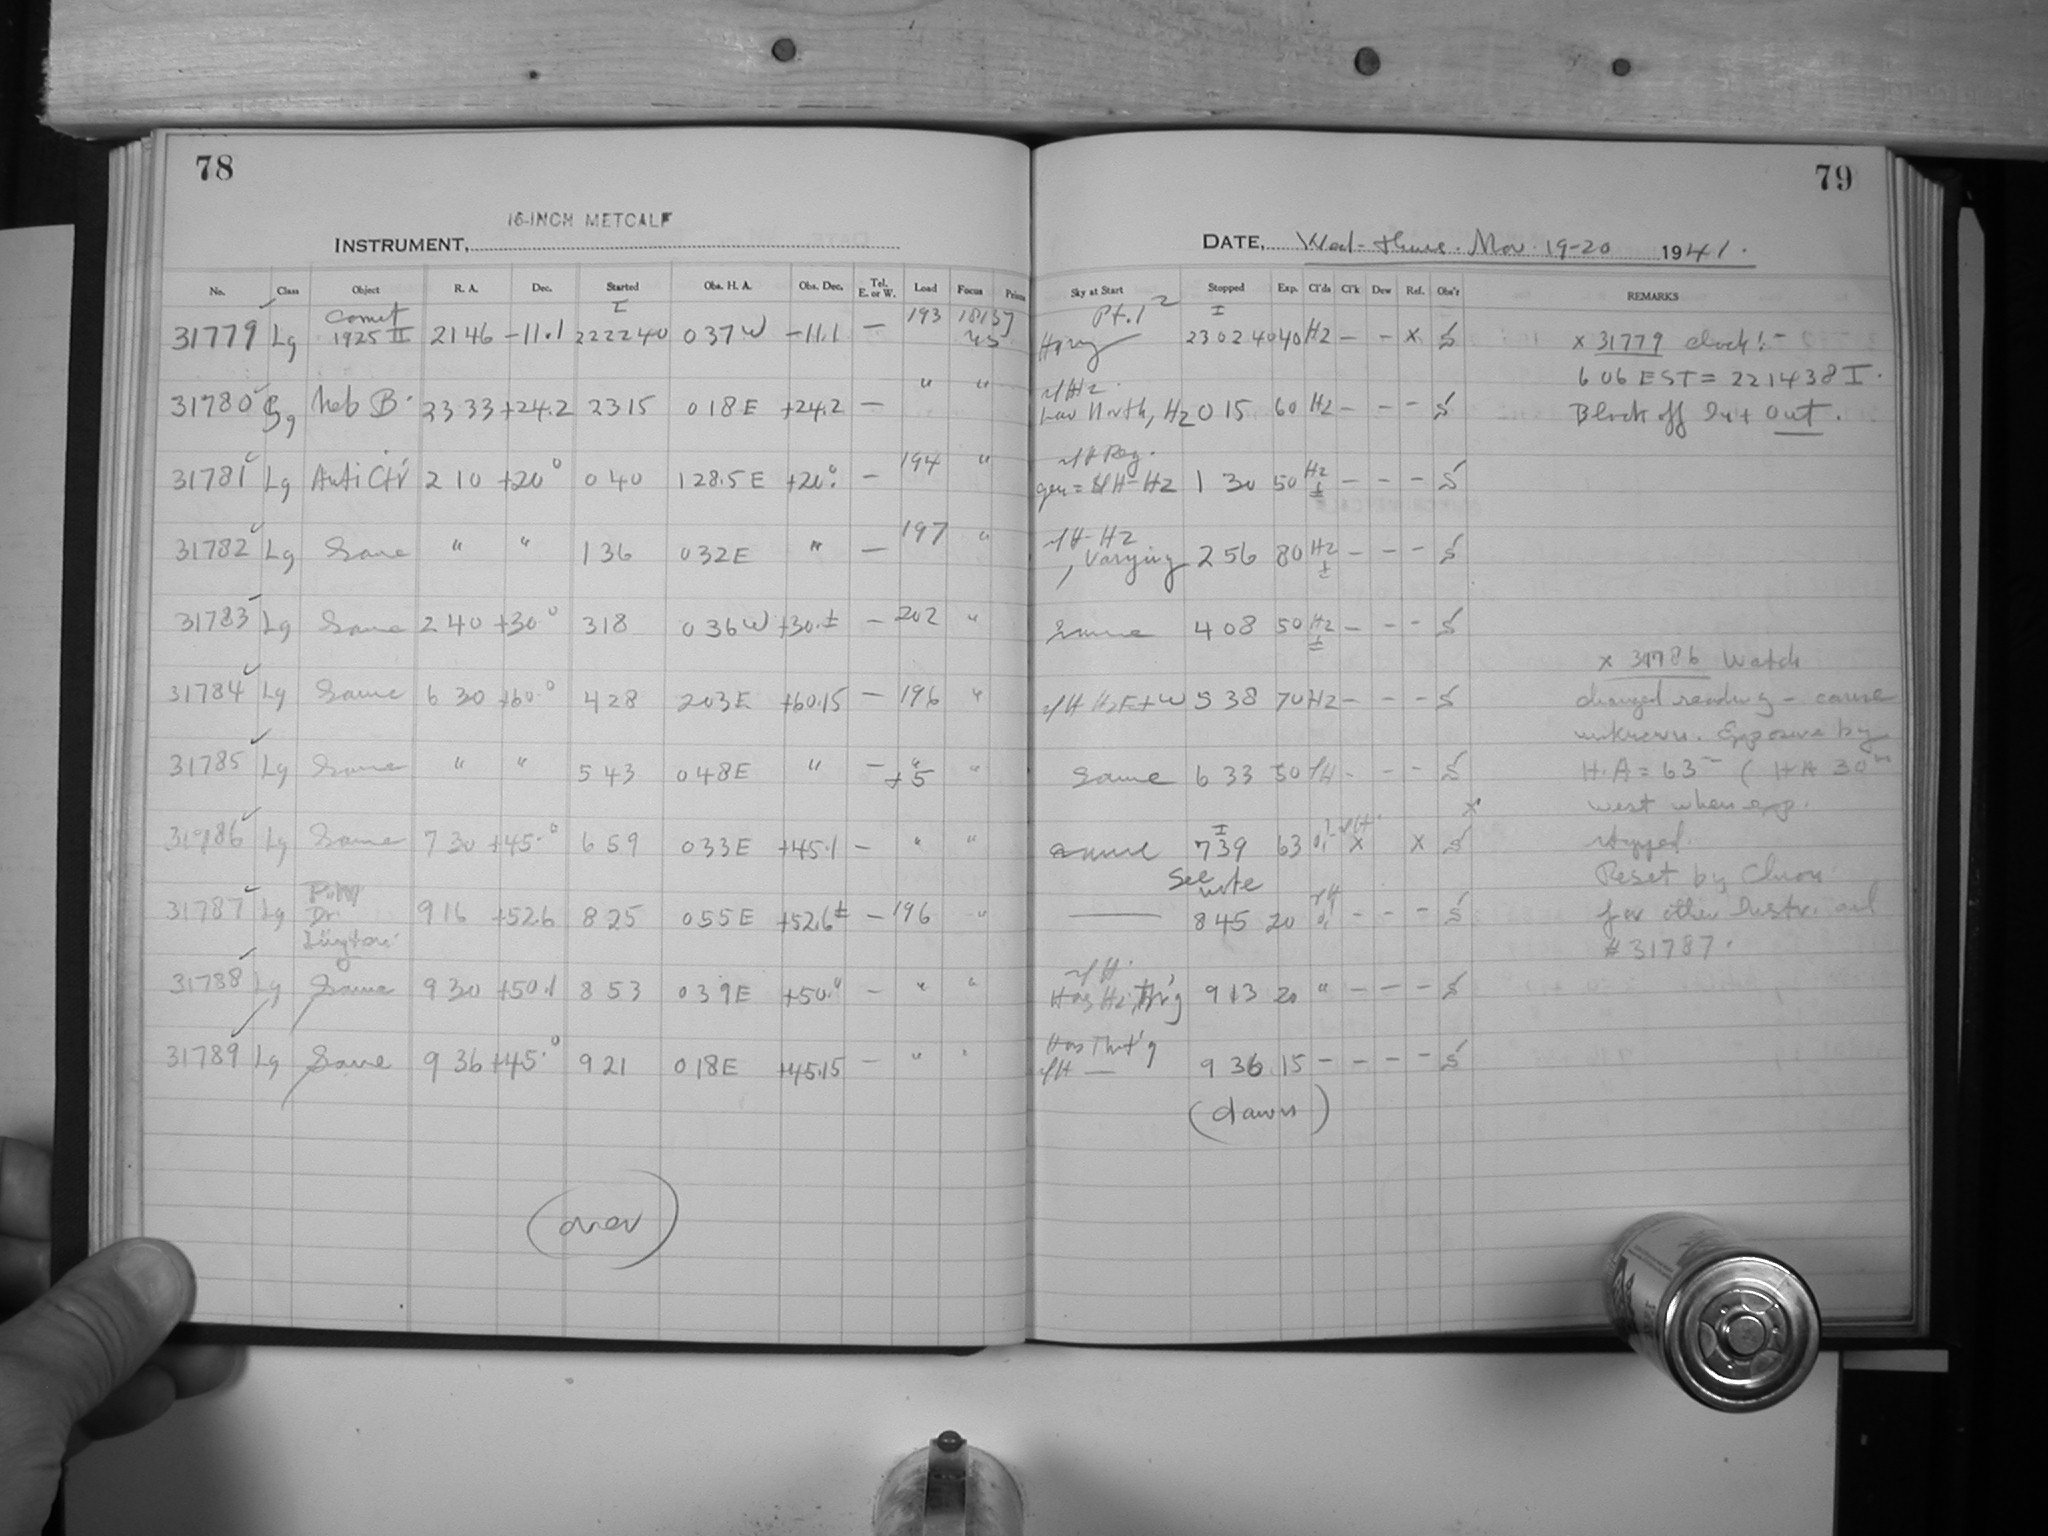 78
16-INCH METCALF
INSTRUMENT,
No. Class Object R. A. Dec. Started Obs. H. A. Obs. Dec. Tel. E. or W. Load Focus
31779 Lg Comet 1925 II 21 46 -11.1 I 22 22 40 0 37 W -11.1 — 193
31780 Neb B. 23 33 +24.2 23 15 0 18 E +24.2 — " "
31781 Lg Anti Ctr 2 10 +20° 0 40 1 28.5 E +20.° — 194 "
31782 Lg Same " " 1 36 0 32 E " — 197 "
31783 Lg Same 2 40 +30.° 3 18 0 36 W +30.± — 202 "
31784 Lg Same 6 30 +60.° 4 28 2 03 E +60.15 — 196 "
31785 Lg Same " " 5 43 0 48 E " — " +5 "
31786 Lg Same 7 30 +45.° 6 59 0 33 E +45.1 — " "
31787 Lg Dr. 9 16 +52.6 8 25 0 55 E +52.6± — 196 "
31788 Lg Same 9 30 +50.1 8 53 0 39 E +50." — " "
31789 Lg Same 9 36 +45.° 9 21 0 18 E +45.15 — " "
(over)
79
DATE, Wed-Thurs. Nov. 19-20 1941.
Sky at Start Stopped Exp. Cl'ds Cl'k Dew Ref. Obs'r REMARKS
Pt. 1²
I 23 02 40 40 Hz — — x S
Low North, Hz 0 15 60 Hz — — — S
1 30 50 Hz ± — — — S
Varying 2 56 80 Hz ± — — — S
Same 4 08 50 Hz ± — — — S
5 38 70 Hz — — — S
Same 6 33 50 — — — S
Same I 7 39 63 x x S
See note
8 45 20 — — — S
Has Hz, 9 13 20 " — — — S
9 36 15 — — — — S
(dawn)
x 31779 clock: -
6 06 EST = 22 14 38 I.
Block off In + Out.
x 31786 Watch
changed reading - cause
unknown. Exposure by
H.A = 63ᵐ (HA 30ᵐ
west when exp.
stopped.
Reset by Chron.
for other Instr. and
# 31787.